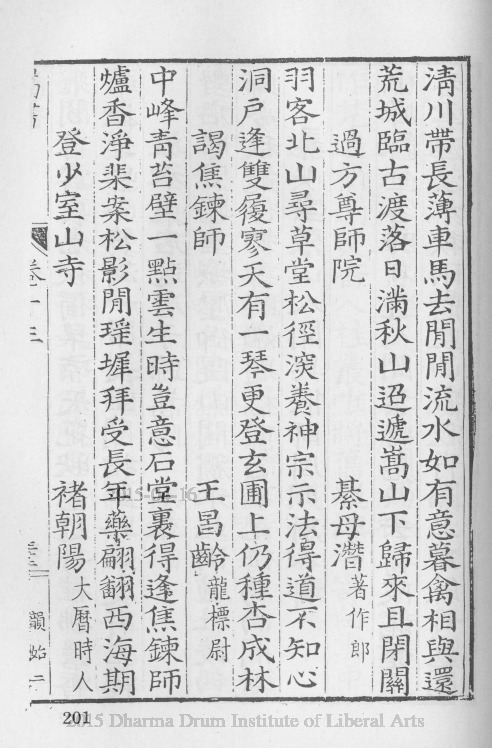 清川帶長薄車馬去閒閒流水如有意暮禽相與還
荒城臨古渡落日滿秋山迢遞嵩山下歸來且閉關
過方尊師院 綦母潛 著作郎
羽客北山尋草堂松徑深養神宗示法得道不知心
洞戶逢雙履寥天有一琴更登玄圃上仍種杏成林
謁焦鍊師 王昌齡 龍標尉
中峰青苔壁一點雲生時豈意石堂裏得逢焦鍊師
爐香淨棐案松影閒瑶墀拜受長年藥翩翻西海期
登少室山寺 褚朝陽 大曆時人
卷十三
201
2015 Dharma Drum Institute of Liberal Arts